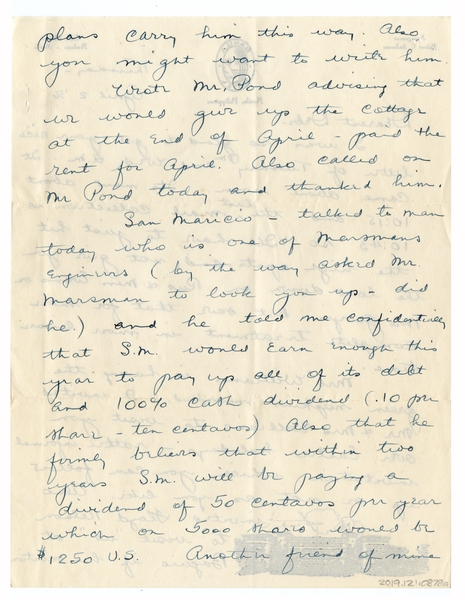 plans carry him this way. Also
you might want to write him.
Wrote Mr. Pond advising that
we would give up the cottage
at the end of April - paid the
rent for April. Also called on
Mr Pond today and thanked him.
San Maricio - talked to man
today who is one of Marsmans
Engineers (by the way asked Mr
Marsman to look you up - did
he.) and he told me confidentially
that S.M. would earn enough this
year to pay up all of its debt
and 100% cash dividend (.10 per
share - ten centavos) Also that he
firmly believes that within two
years S.M. will be paying a
dividend of 50 centavos per year
which on 5000 shares would be
$1250 U.S. Another friend of mine
2019.12.10878a